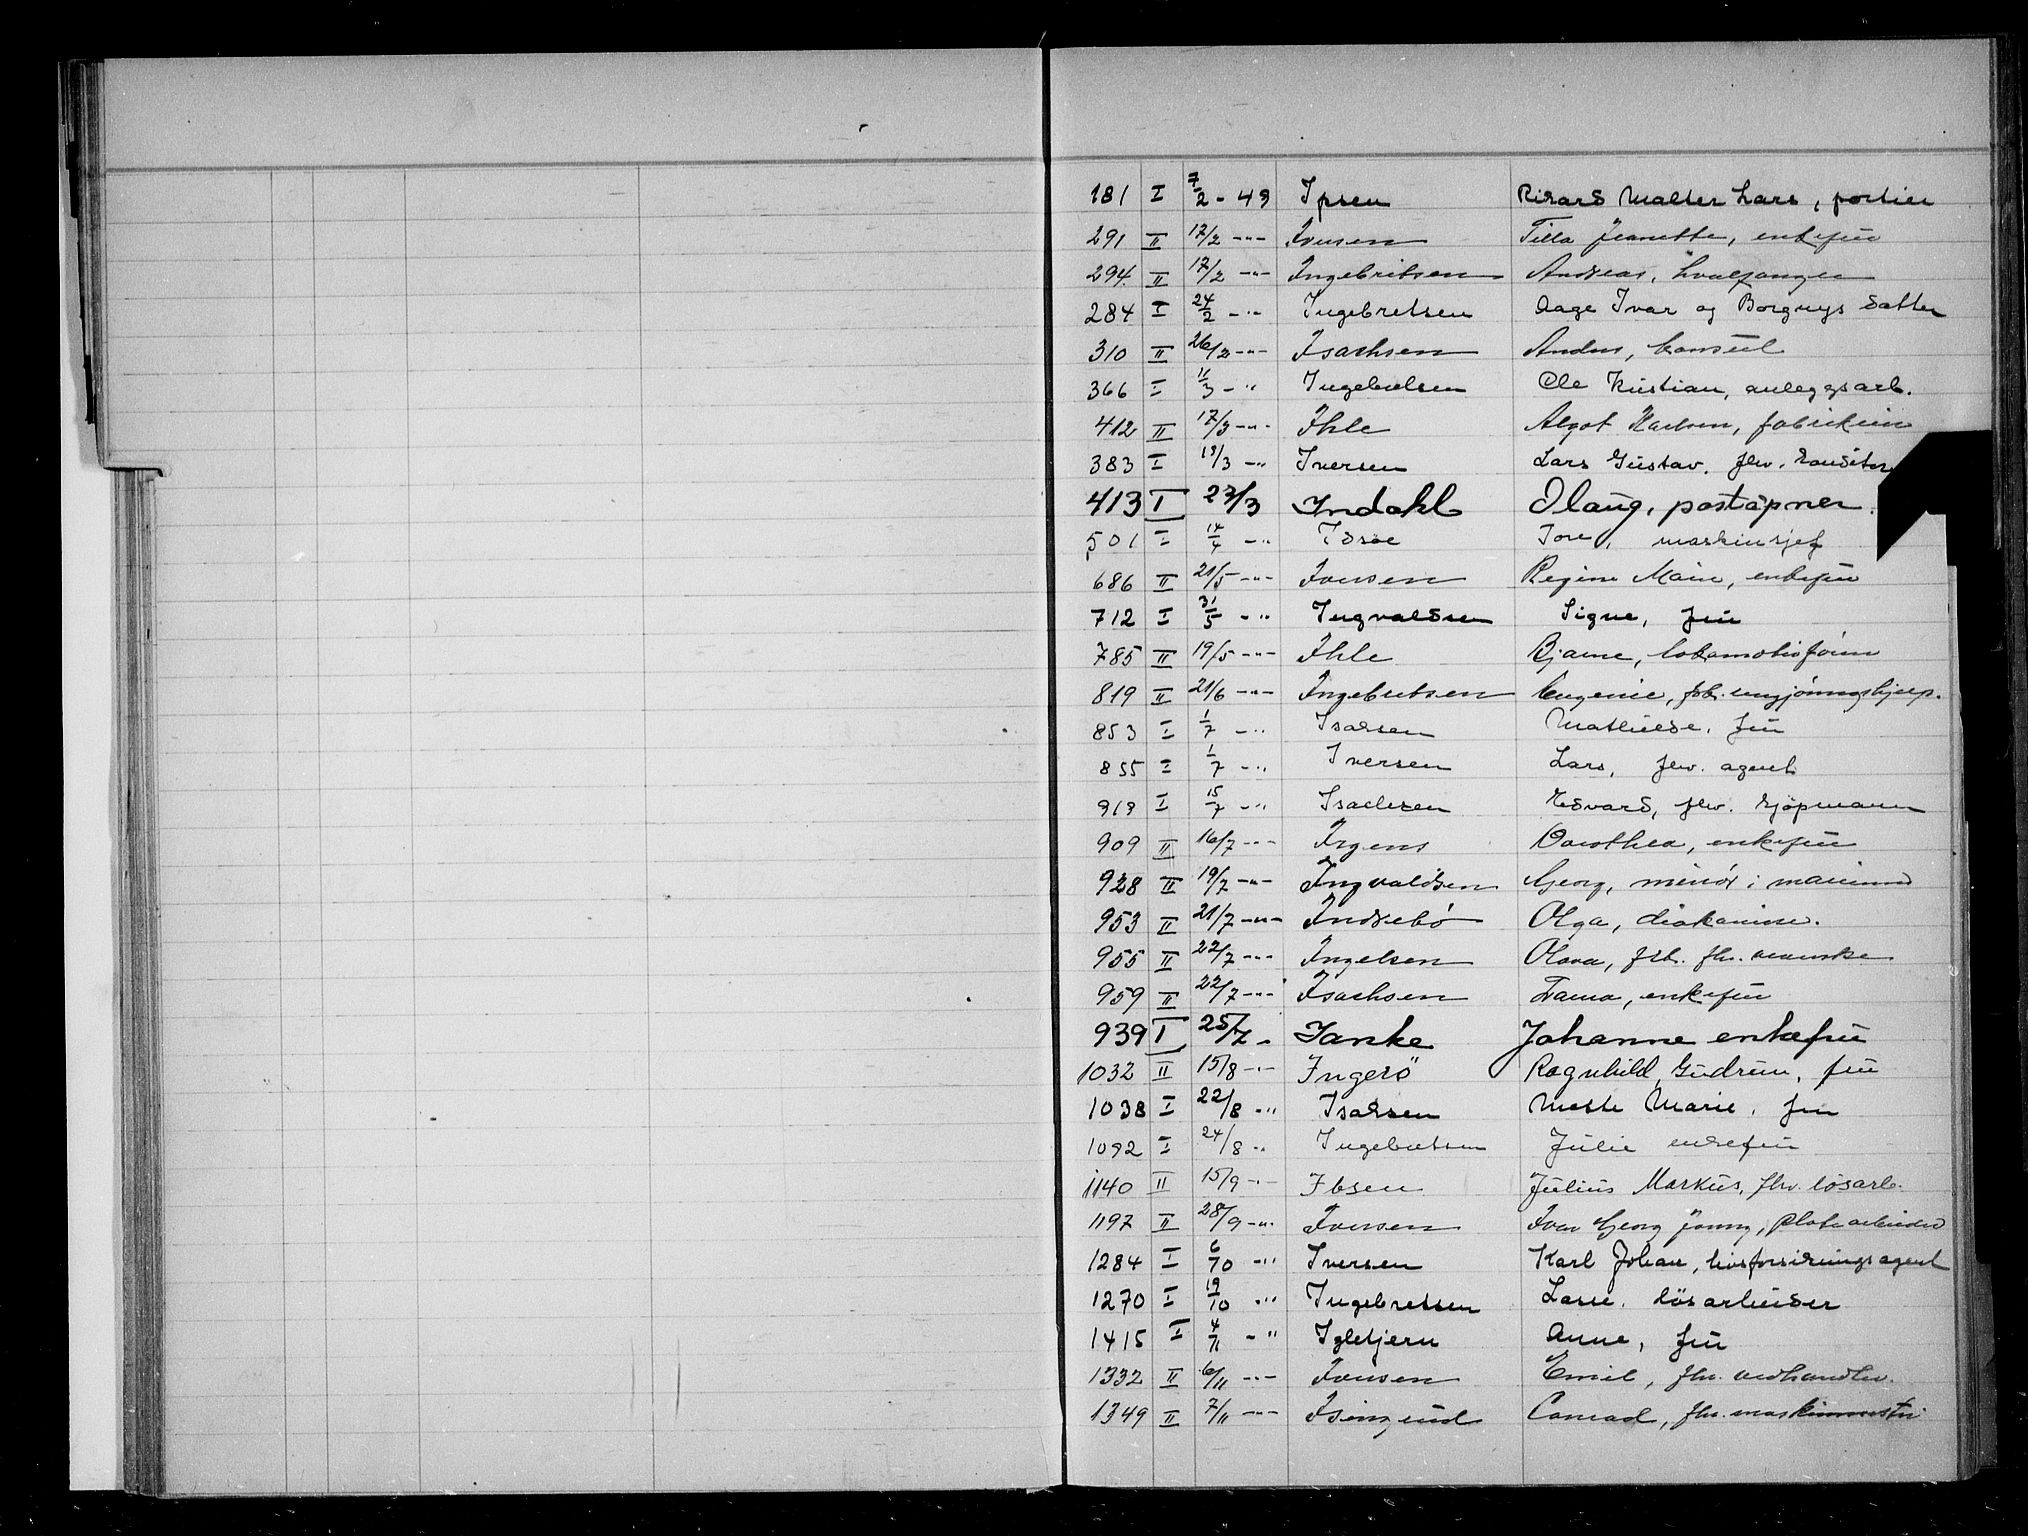 181 I 7/2 - 49 Ipsen Rikard Walter Lars, portier
291 II 17/2 -"- Iversen Tilla Jeanette, enkefru
294. II 17/2 -"- Ingebritsen Andreas, hvalfanger
284 I 24/2 -"- Ingebretsen Aage Ivar og Borgnys datter
310 II 26/2 -"- Isachsen Anders, konsul
366 I 11/3 -" Ingebretsen Ole Kristian, anleggsarb.
412 II 17/3 -"- Ihle Algot Karlsen, fabrikeier
383 I 18/3 -"- Iversen Lars Gustav, fhv. konditor
413 I 23/3 Indahl Olaug, poståpner.
501 I 14/4 -"- Tore, maskinsjef
686 II 21/5 -"- Iversen Regine Marie, enkefru
712 I 31/5 -" Ingvaldsen Signe, fru
785 II 19/5 -"- Ihle Bjarne, lokomotivfører
819 II 21/6 -"- Ingebretsen Eugenie, frk. rengjøringshjelp.
853 I 1/7 -" Isaksen Mathilde, fru
855 I 1/7 -" Iversen Lars, fhv. agent
919 I 15/7 -" Isachsen Edvard, fhv. kjøpmann
909 II 16/7 -"- Irgens Dorothea, enkefru
928 II 19/7 -"- Ingvaldsen Georg, i marinen
953 II 21/7 -"- Indrebø Olga, diakonisse.
955 II 22/7 -"- Ingelsen Olava, frk. fhv.
959 II 22/7 -"- Isachsen enkefru
939 I 25/7 - Janke Johanne enkefru
1032 II 15/8 -"- Ingerø Ragnhild Gudrun, fru
1038 I 22/8 -" Isaksen Marie, fru
1092 I 24/8 -" Ingebretsen Julie enkefru
1140 II 15/9 -"- Ibsen Julius Markus, fhv. løsarb.
1197 II 28/9 -"- Iversen Ivar Georg Jonny, platearbeider
1284 I 6/10 -" Iversen Karl Johan, livsforsikringsagent
1270 I 19/10 " Ingebretsen Lasse, løsarbeider
1415 I 4/11 -" Igletjern Anne, fru
1332 II 6/11 -"- Iversen Emil, fhv. vedhandler.
1349 II 7/11 -"- Isingrud Conrad, fhv. maskinmester